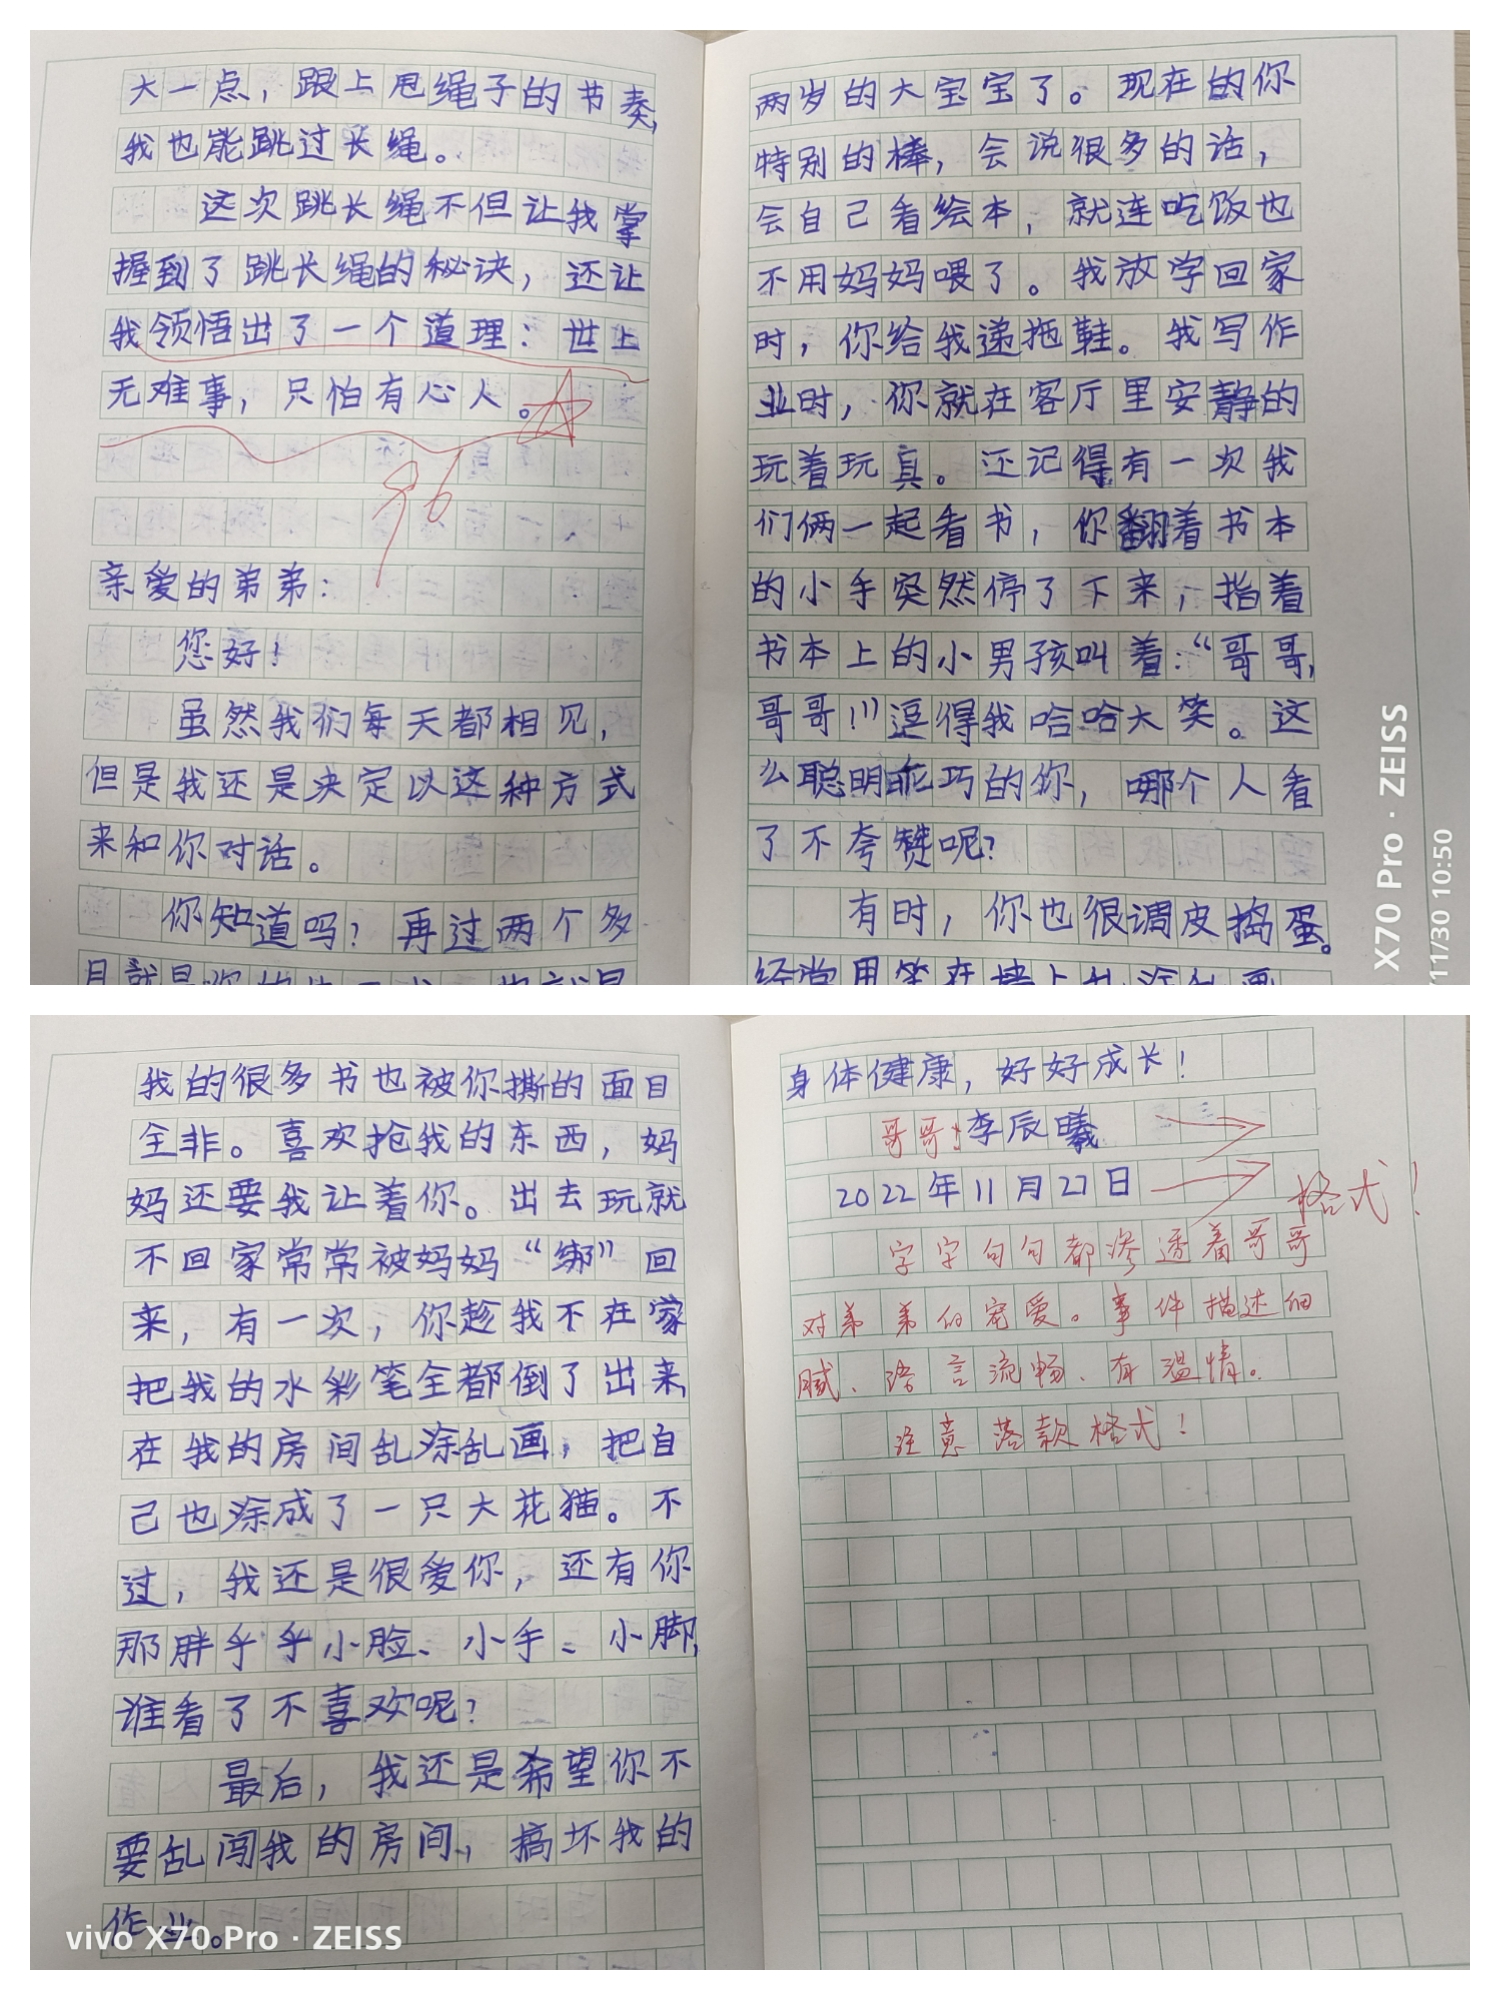 大一点，跟上甩绳子的节奏，
我也能跳过长绳。
这次跳长绳不但让我掌
握到了跳长绳的秘诀，还让
我领悟出了一个道理：世上
无难事，只怕有心人。
96
亲爱的弟弟：
您好！
虽然我们每天都相见，
但是我还是决定以这种方式
来和你对话。
你知道吗？再过两个多
月就是你的
两岁的大宝宝了。现在的你
特别的棒，会说很多的话，
会自己看绘本，就连吃饭也
不用妈妈喂了。我放学回家
时，你给我递拖鞋。我写作
业时，你就在客厅里安静的
玩着玩具。还记得有一次我
们俩一起看书，你翻着书本
的小手突然停了下来，指着
书本上的小男孩叫着：“哥哥，
哥哥！”逗得我哈哈大笑。这
么聪明乖巧的你，哪个人看
了不夸赞呢？
有时，你也很调皮捣蛋。
经常用笔在墙上乱涂乱画
X70 Pro · ZEISS
11/30 10:50
我的很多书也被你撕的面目
全非。喜欢抢我的东西，妈
妈还要我让着你。出去玩就
不回家常常被妈妈“绑”回
来，有一次，你趁我不在家
把我的水彩笔全都倒了出来，
在我的房间乱涂乱画，把自
己也涂成了一只大花猫。不
过，我还是很爱你，还有你
那胖乎乎小脸、小手、小脚，
谁看了不喜欢呢？
最后，我还是希望你不
要乱闯我的房间，搞坏我的
作业。
vivo X70 Pro · ZEISS
身体健康，好好成长！
哥哥：李辰曦
2022年11月27日
格式！
字字句句都渗透着哥哥
对弟弟的宠爱。事件描述细
腻、语言流畅、有温情。
注意落款格式！